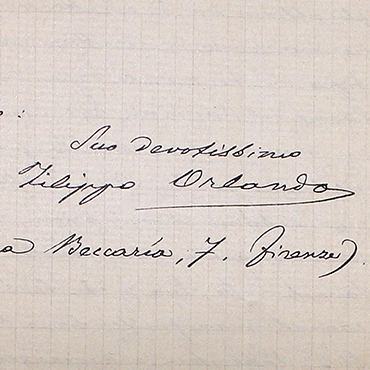 Suo devotissimo
Filippo Orlando
a Beccaria, 7. Firenze)